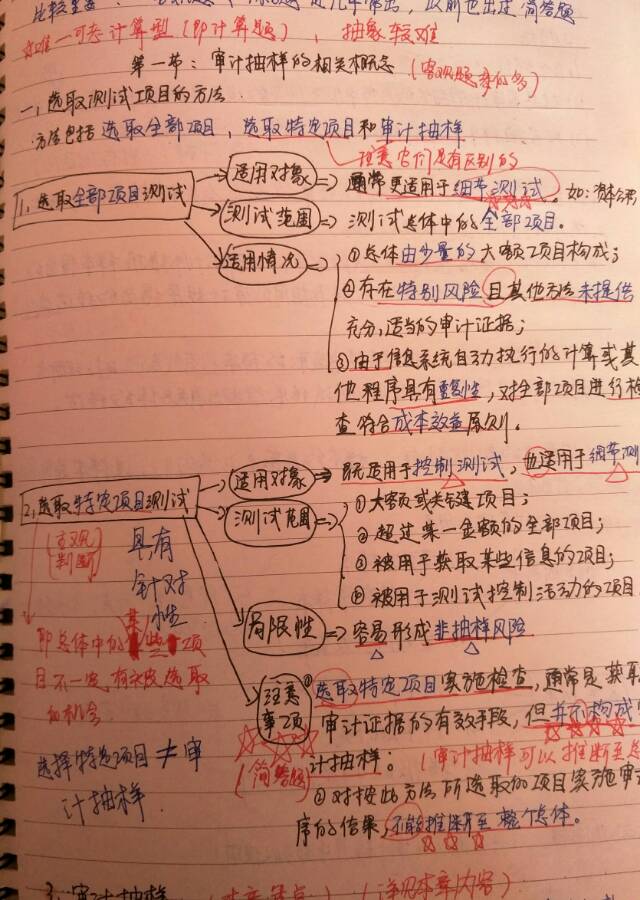 以前也出过简答题
难一可考计算型（即计算题），抽象较难
第一节：审计抽样的相关概念（客观题考的多）
一、选取测试项目的方法
方法包括选取全部项目，选取特定项目和审计抽样
注意它们是有区别的
1、选取全部项目测试
适用对象 => 通常更适用于细节测试。如：资本公积，
测试范围 => 测试总体中的全部项目。
适用情况 => ①总体由少量的大额项目构成；
②存在特别风险且其他方法未提供
充分，适当的审计证据；
③由于信息系统自动执行的计算或其
他程序具有重复性，对全部项目进行检
查符合成本效益原则。
2、选取特定项目测试
适用对象 => 既适用于控制测试，也适用于细节测
测试范围 => ①大额或关键项目；
②超过某一金额的全部项目；
③被用于获取某些信息的项目；
④被用于测试控制活动的项目
（主观判断）
具有
针对
性
即总体中的某些项
目不一定有被选取
的机会
局限性 => 容易形成非抽样风险
注意事项
（简答题）
①选取特定项目实施检查，通常是获取
审计证据的有效手段，但并不构成审
计抽样：（审计抽样可以推断至总
②对按此方法所选取的项目实施审
序的结果，不能推断至整个总体。
选择特定项目≠审
计抽样
3、审计抽样（详见本章内容）